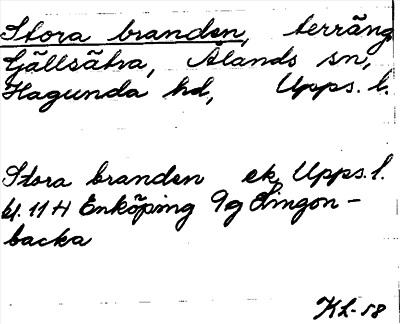 Stora branden, terräng
Gällsätra, Ålands sn,
Hagunda hd, Upps. l.
Stora branden ek, Upps. l.
bl. 11 H Enköping 9g Lingon-
backa
KL-58